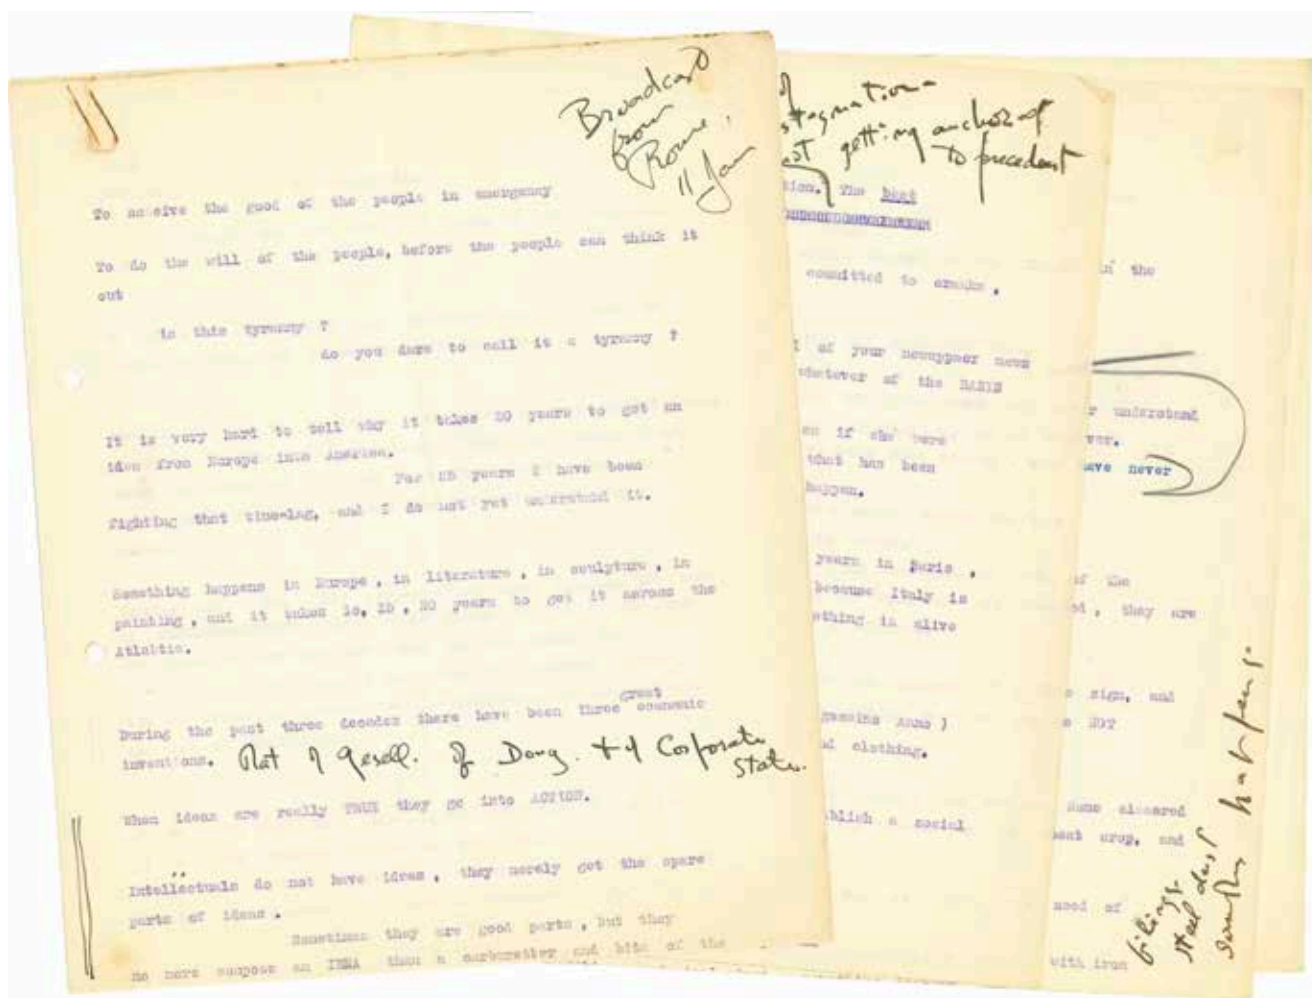 Broadcast
from
Rome,
11 Jan
To achieve the good of the people in emergency
To do the will of the people, before the people can think it
out
is this tyranny ?
do you dare to call it a tyranny ?
It is very hard to tell why it takes 20 years to get an
idea from Europe into America.
For 25 years I have been
fighting that time-lag, and I do not yet understand it.
Something happens in Europe , in literature , in sculpture , in
painting , and it takes 10, 15 , 20 years to get it across the
Atlantic.
great
During the past three decades there have been three economic
inventions. That of Gesell. of Doug. + of Corporate
State.
When ideas are really TRUE they go into ACTION.
Intellectuals do not have ideas , they merely get the spare
parts of ideas .
Sometimes they are good parts , but they
no more compose an IDEA than a carburetter and bits of the
of
stagnation
getting anchored
to precedent
tion. The best
committed to
of your newspaper
whatever of the BASIS
if she were
what has been
happen.
years in Paris ,
because Italy is
thing is alive
Anno )
clothing.
blish a social
in the
understand
ver.
ave never
of the
, they are
sign, and
NOT
crop, and
need of
with iron
filings.
steel dust
something happens.